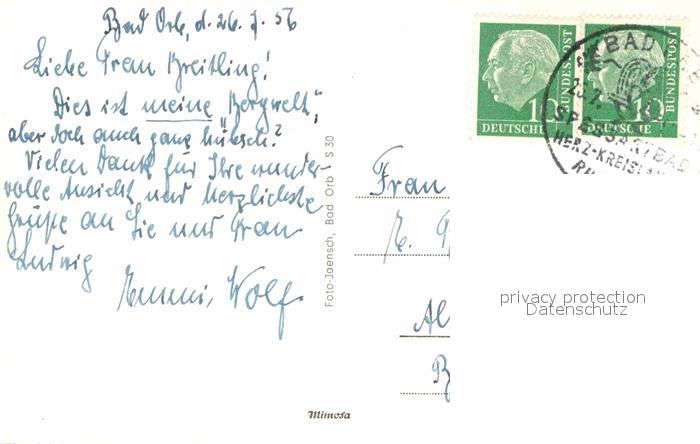 Bad Orb, d. 26. 7. 56
Liebe Frau Breitling!
Dies ist meine „Bergwelt“,
aber doch auch ganz hübsch?
Vielen Dank für Ihre wunder-
volle Ansicht und herzlichste
Grüße an Sie und Frau
Ludwig
Emmi Wolf.
Foto-Jaensch, Bad Orb 1 S 30
Mimosa
Frau
Al
10 BUNDESPOST
DEUTSCHE
10 BUNDESPOST
DEUTSCHE
BAD
SPESSARTBAD
HERZ-KREISLA
privacy protection
Datenschutz